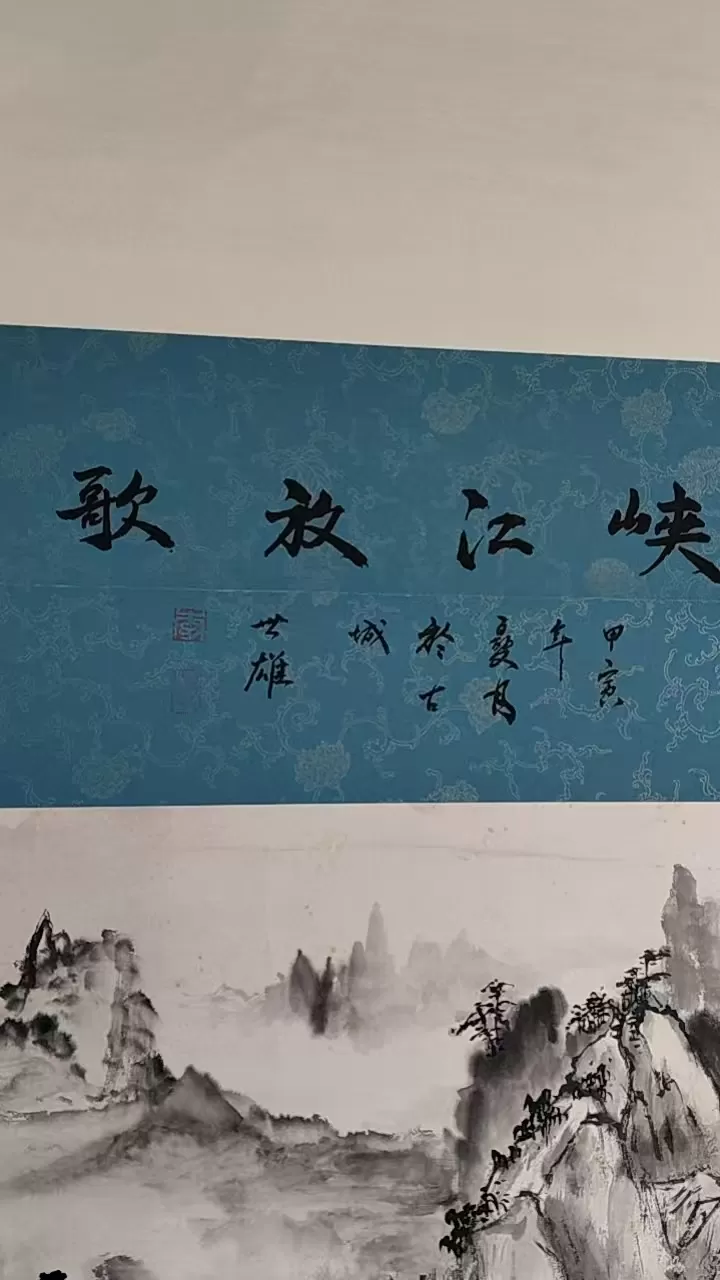 峡江放歌
甲寅
年
夏月
於古
城
世雄